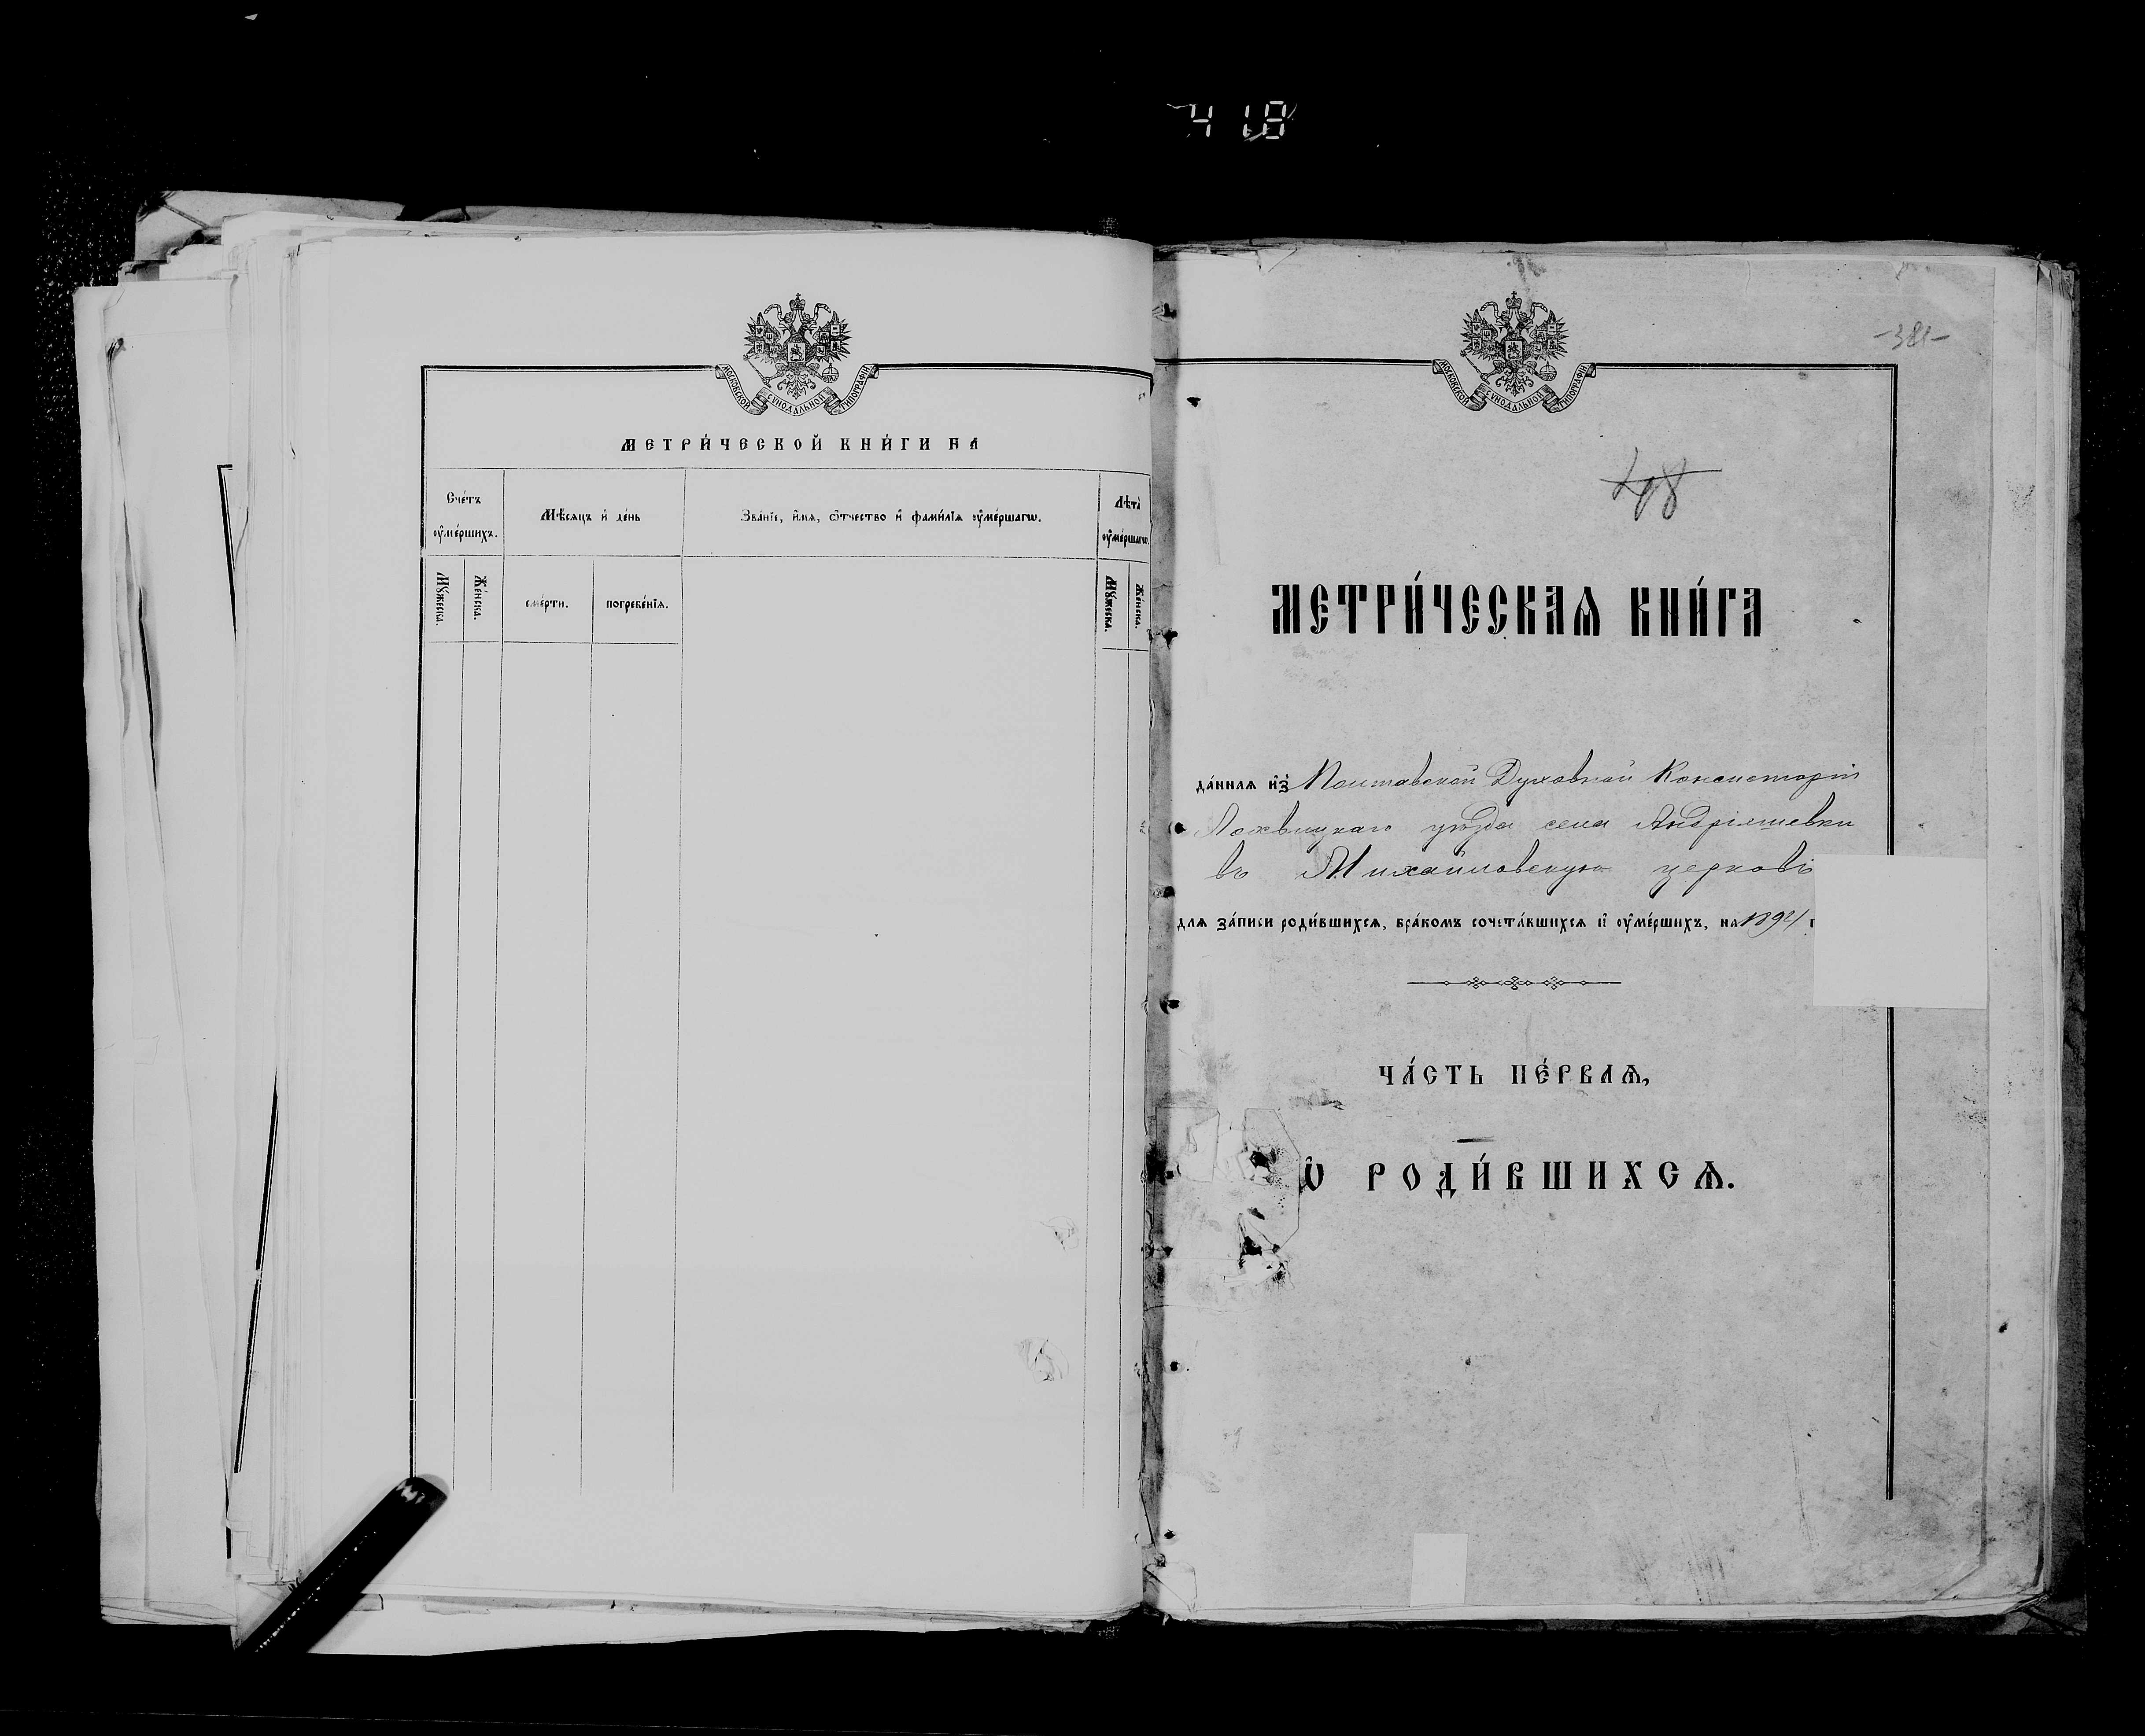 418
МОСКОВСКОЙ СѴНОДАЛЬНОЙ ТИПОГРАФІИ
МЕТРИ́ЧЕСКОЙ КНИ́ГИ НА
Сче́тъ ᲂу҆ме́ршихъ.
Мѣ́сяцъ и҆ де́нь
Зва́нїе, и҆́мѧ, ѻ҆́тчество и҆ фами́лїѧ ᲂу҆ме́ршагѡ.
Лѣта̀ ᲂу҆ме́ршагѡ.
Мꙋ́жеска.
Же́нска.
сме́рти.
погребе́нїѧ.
Мꙋ́жеска.
Же́нска.
МОСКОВСКОЙ СѴНОДАЛЬНОЙ ТИПОГРАФІИ
МЕТРИ́ЧЕСКАѦ КНИ́ГА
да́ннаѧ и҆з̾ Полтавской Духовной Консисторіи
Лохвицкаго уѣзда села Андріяшевки
въ Михайловскую церковь
длѧ за́писи роди́вшихсѧ, бра́комъ сочета́вшихсѧ и҆ ᲂу҆ме́ршихъ, на
ЧА́СТЬ ПЕ́РВАѦ,
Ѡ҆ РОДИ́ВШИХСѦ.